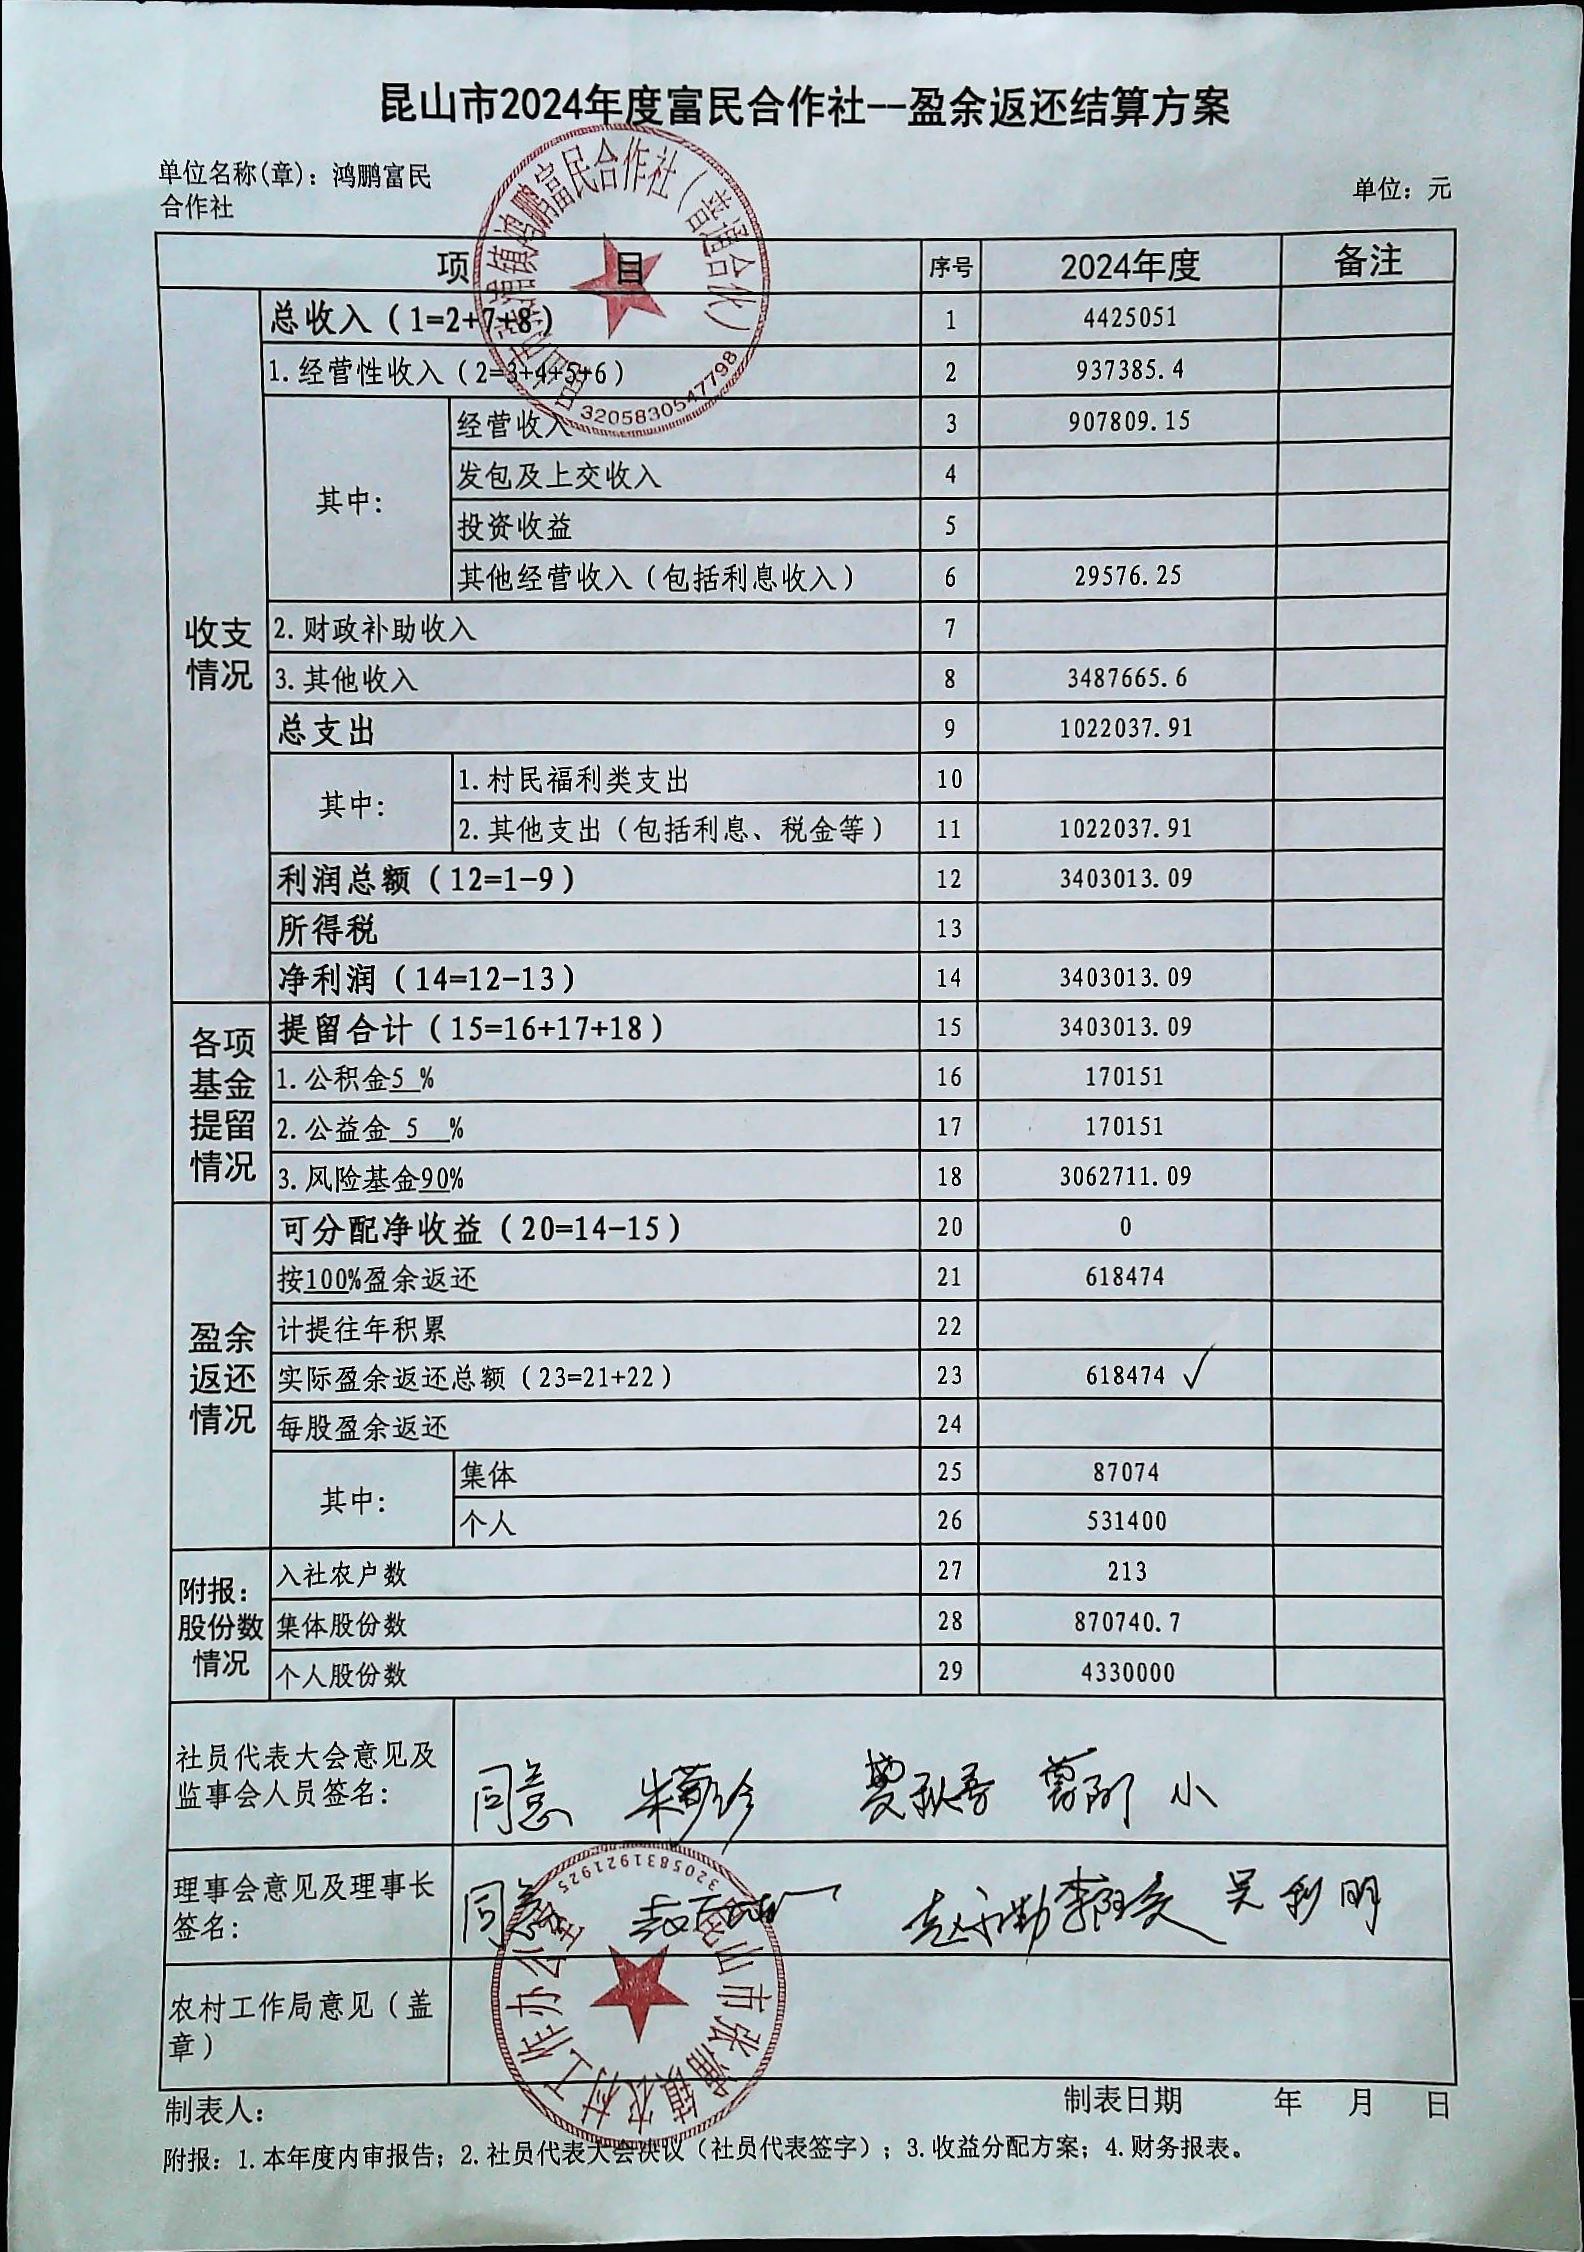 昆山市2024年度富民合作社--盈余返还结算方案
单位名称(章): 鸿鹏富民
合作社
单位: 元
项 目 序号 2024年度 备注
总收入(1=2+7+8) 1 4425051
1.经营性收入(2=3+4+5+6) 2 937385.4
经营收入 3 907809.15
发包及上交收入 4
其中:
投资收益 5
其他经营收入(包括利息收入) 6 29576.25
收支
情况
2.财政补助收入 7
3.其他收入 8 3487665.6
总支出 9 1022037.91
1.村民福利类支出 10
其中:
2.其他支出(包括利息、税金等) 11 1022037.91
利润总额(12=1-9) 12 3403013.09
所得税 13
净利润(14=12-13) 14 3403013.09
各项
基金
提留
情况
提留合计(15=16+17+18) 15 3403013.09
1.公积金5 % 16 170151
2.公益金 5 % 17 170151
3.风险基金90% 18 3062711.09
可分配净收益(20=14-15) 20 0
按100%盈余返还 21 618474
盈余
返还
情况
计提往年积累 22
实际盈余返还总额(23=21+22) 23 618474 ✓
每股盈余返还 24
其中:
集体 25 87074
个人 26 531400
附报:
股份数
情况
入社农户数 27 213
集体股份数 28 870740.7
个人股份数 29 4330000
社员代表大会意见及
监事会人员签名:
同意
理事会意见及理事长
签名:
同意 吴利明
农村工作局意见(盖
章)
制表人:
制表日期 年 月 日
附报: 1.本年度内审报告; 2.社员代表大会决议(社员代表签字); 3.收益分配方案; 4.财务报表。
昆山市张浦镇鸿鹏富民合作社(普通合伙)
3205830547798
昆山市张浦镇农村工作办公室
3205831921925